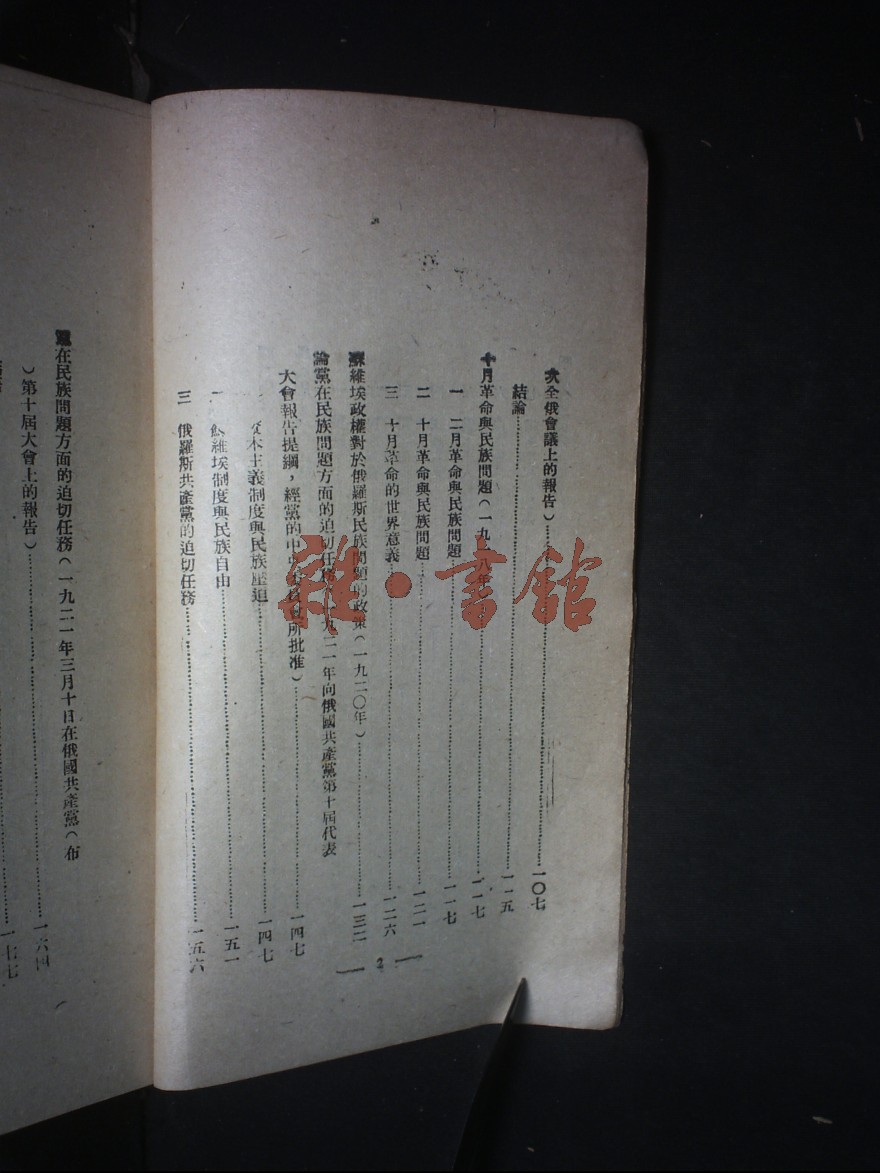 次全俄會議上的報告）……一〇七
結論……一一五
十月革命與民族問題（一九一八年……一一七
一　二月革命與民族問題……一一七
二　十月革命與民族問題……一二一
三　十月革命的世界意義……一二六
蘇維埃政權對於俄羅斯民族問題的政策（一九二〇年）……一三二
論黨在民族問題方面的迫切任務 九二一年向俄國共產黨第十屆代表
大會報告提綱，經黨的中 所批准）……一四七
資本主義制度與民族壓迫……一四七
一　蘇維埃制度與民族自由……一五一
三　俄羅斯共產黨的迫切任務……一五六
2
在民族問題方面的迫切任務（一九二一年三月十日在俄國共產黨（布
）第十屆大會上的報告）……一六四
一七七
雜·書館